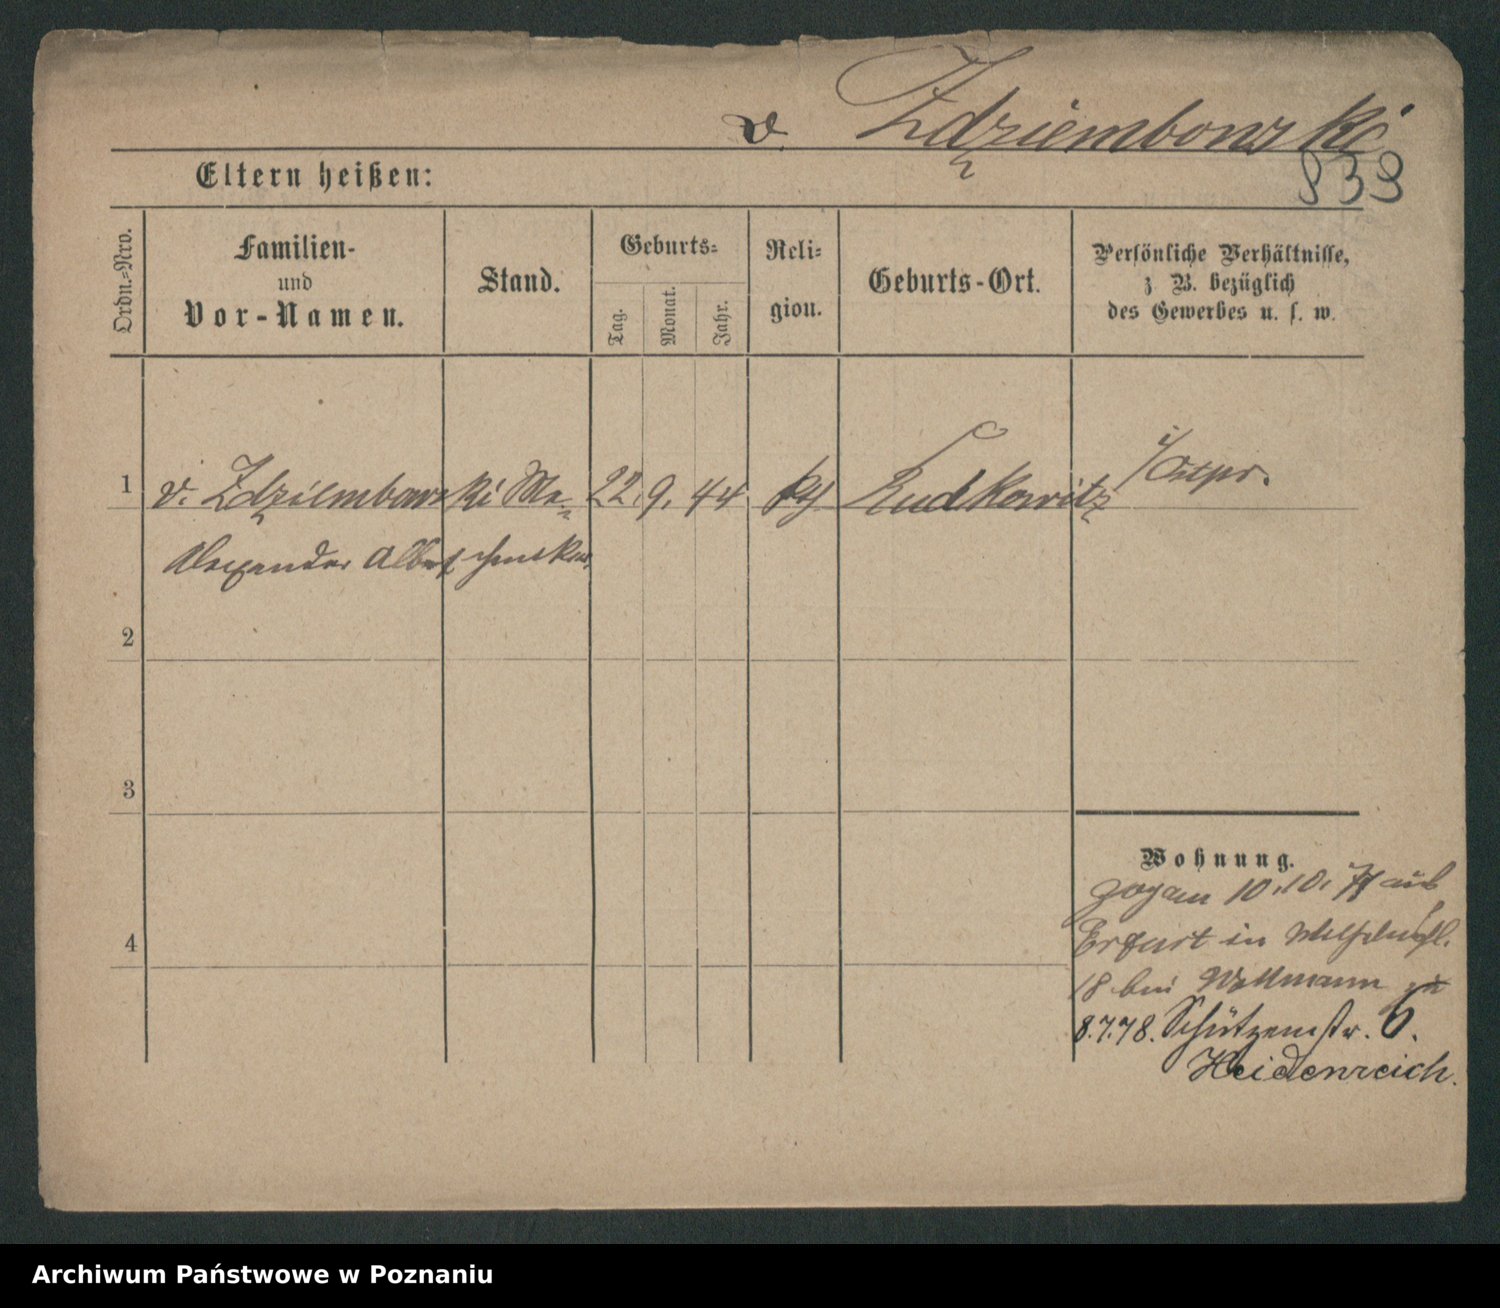 v. Zdziembowski
839
Eltern heißen:
Ordn.-Nro.
Familien-
und
Vor-Namen.
Stand.
Geburts-
Tag.
Monat.
Jahr.
Reli-
gion.
Geburts-Ort.
Persönliche Verhältnisse,
z B. bezüglich
des Gewerbes u. s. w.
1 v. Zdziembowski 22. 9. 44 Ludkowitz
Alexander Albert
2
3
4
Wohnung.
zog am 10.10. aus
Erfurt in
18 bei
8.7.78. Schützenstr. 6.
Heidenreich.
Archiwum Państwowe w Poznaniu